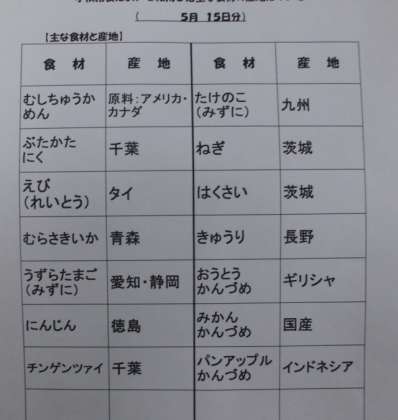 (　　　　5月 15日分)
【主な食材と産地】
食　材
産　地
食　材
産　地
むしちゅうか
めん
原料：アメリカ・
カナダ
たけのこ
(みずに)
九州
ぶたかた
にく
千葉
ねぎ
茨城
えび
(れいとう)
タイ
はくさい
茨城
むらさきいか
青森
きゅうり
長野
うずらたまご
(みずに)
愛知・静岡
おうとう
かんづめ
ギリシャ
にんじん
徳島
みかん
かんづめ
国産
チンゲンツァイ
千葉
パンアップル
かんづめ
インドネシア